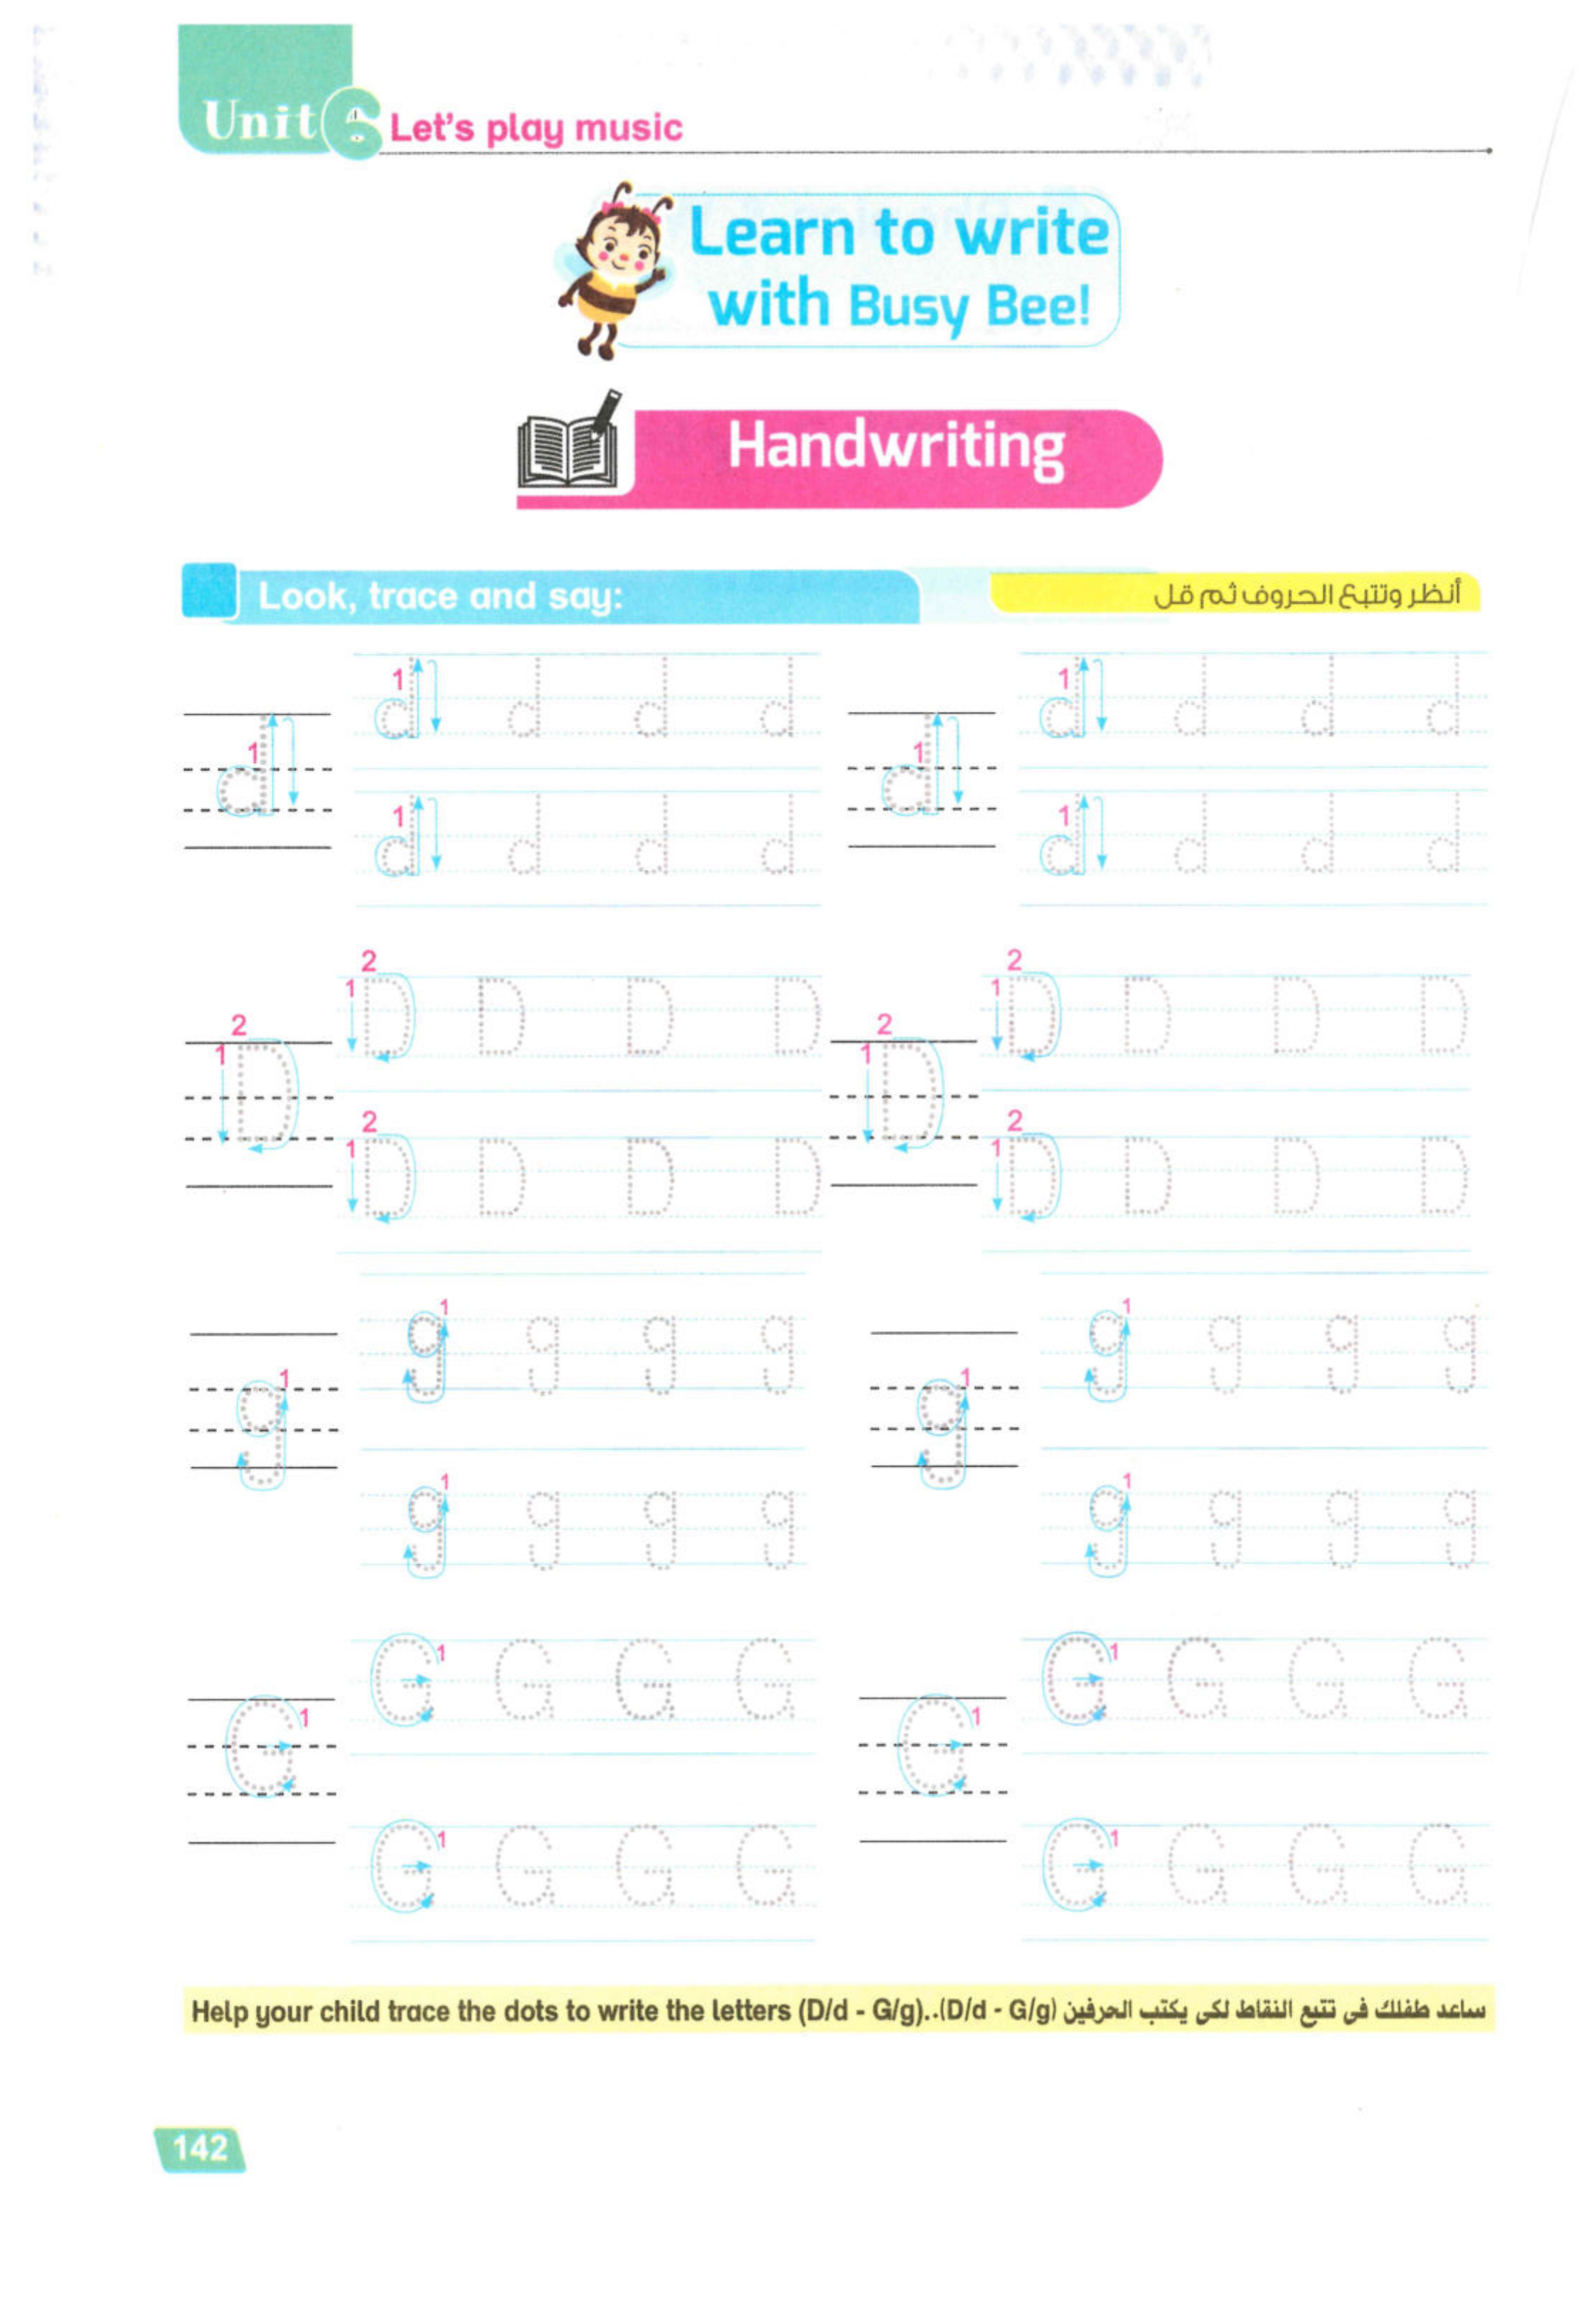 Unit 6 Let's play music
Learn to write
with Busy Bee!
Handwriting
Look, trace and say: أنظر وتتبع الحروف ثم قل
1 d d d d 1 d d d d
1 d 1 d
1 d d d d 1 d d d d
2 2
1 D D D D 1 D D D D
2 2
1 D 1 D
2 2
1 D D D D 1 D D D D
1 1
g g g g g g g g
1 1
g g
1 1
g g g g g g g g
G 1 G G G G 1 G G G
G 1 G 1
G 1 G G G G 1 G G G
Help your child trace the dots to write the letters (D/d - G/g). ساعد طفلك فى تتبع النقاط لكى يكتب الحرفين (D/d - G/g).
142